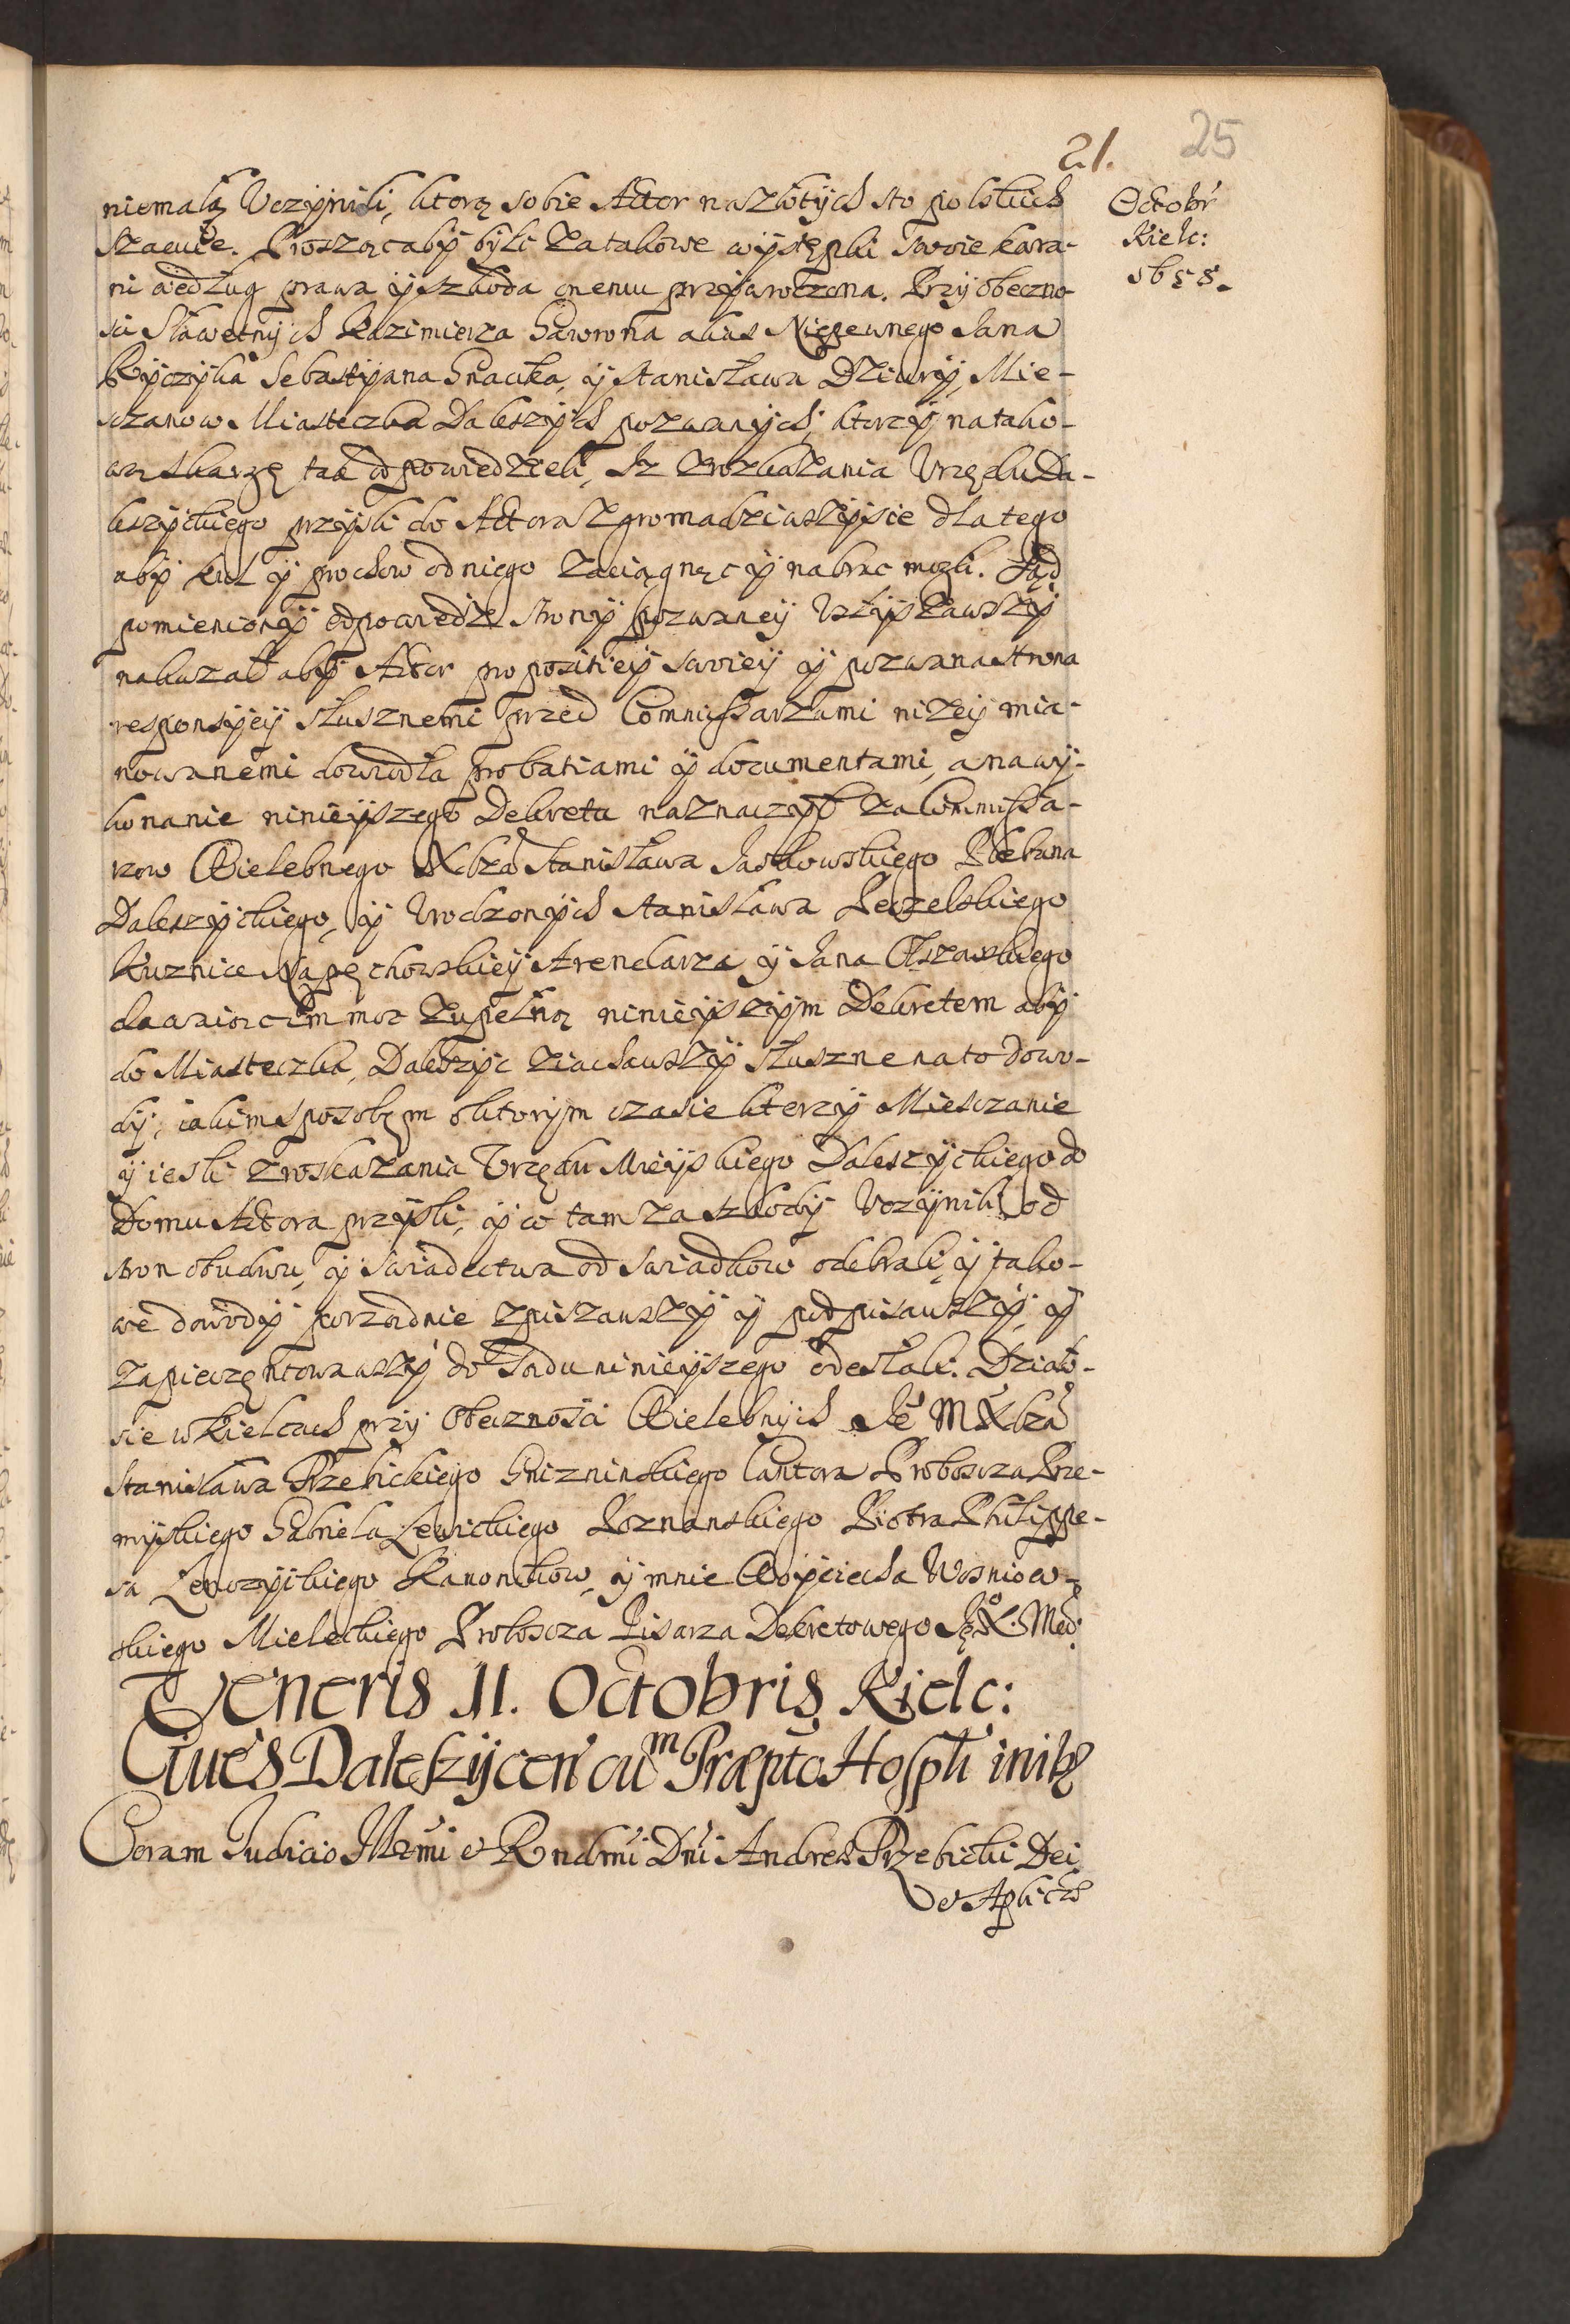 21.
25
Octobr
Kielc:
1658.
niemałą Vczynili, ktorą sobie Aktor na złotych sto polskich
szacuie. Prosząc aby byli za takowe występki swoie kara-
ni według prawa y szkoda onemu przywrocona. Przy obecno-
sci Sławetnych Kazimierza Gawrona alias Niepewnego Jana
Byczyka Sebastyana Gnacika, y Stanisława Dziury, Mie-
sczanow Miasteczka Daleszyc pozwanych, ktorzy na tako-
wą skargę tak odpowiedzieli, Iz z rozkazania Vrzędu Da-
leszyckiego przyszli do Aktora zgromadziwszy sie dla tego
aby kul y prochow od niego zaciągnąc y nabrac mogli. Sąd
pomieniony odpowiedzi strony pozwaney Vsłyszawszy
nakazał aby Aktor propozitiey swoiey y pozwana strona
responsyey słusznemi przed Commissarzami nizey mia-
nowanemi dowiodła probatiami y documentami, a na wy-
konanie ninieyszego Dekretu naznaczył za Commissa-
rzow Wielebnego Xdza Stanisława Jaskowskiego Plebana
Daleszyckiego, y Vrodzonych Stanisława Peczelskiego
Kuznice Napęchowskiey Arendarza y Jana Olszawskiego
dawaiąc im moc zupełną ninieyszym Dekretem aby
do Miasteczka, Daleszyc ziachawszy słuszne na to dowo-
dy, iakim sposobem o ktorym czasie ktorzy Miesczanie
y iesli z roskazania Vrzędu Mieyskiego Daleszyckiego do
Domu Aktora przyszli, y co tam za szkody Vczynili od
stron obudwu, y swiadectwa od swiadkow odebrali, y tako-
we dowody porządnie zpisawszy y podpisawszy, y
zapieczętowawszy do Sądu ninieyszego odesłali. Działo-
sie w Kielcach przy Obecznosci Wielebnych Je M Xdza
Stanisława Trzebickiego Gnizninskiego Cantora Proboscza Prze-
myskiego Gabriela Lewickiego Poznanskiego Piotra Philippe-
sa Lenczyckiego Kanonikow, y mnie Woyciecha Wosniow-
skiego Mieleckiego Proboscza Pisarza Dekretowego JęX. Mci
Veneris 11. Octobris Kielc:
Ciues Daleszycen cum Præpto Hosptli inibi
Coram Judicio Illmi et Rndmi Dni Andreæ Trzebicki Dei
et Aplicæ